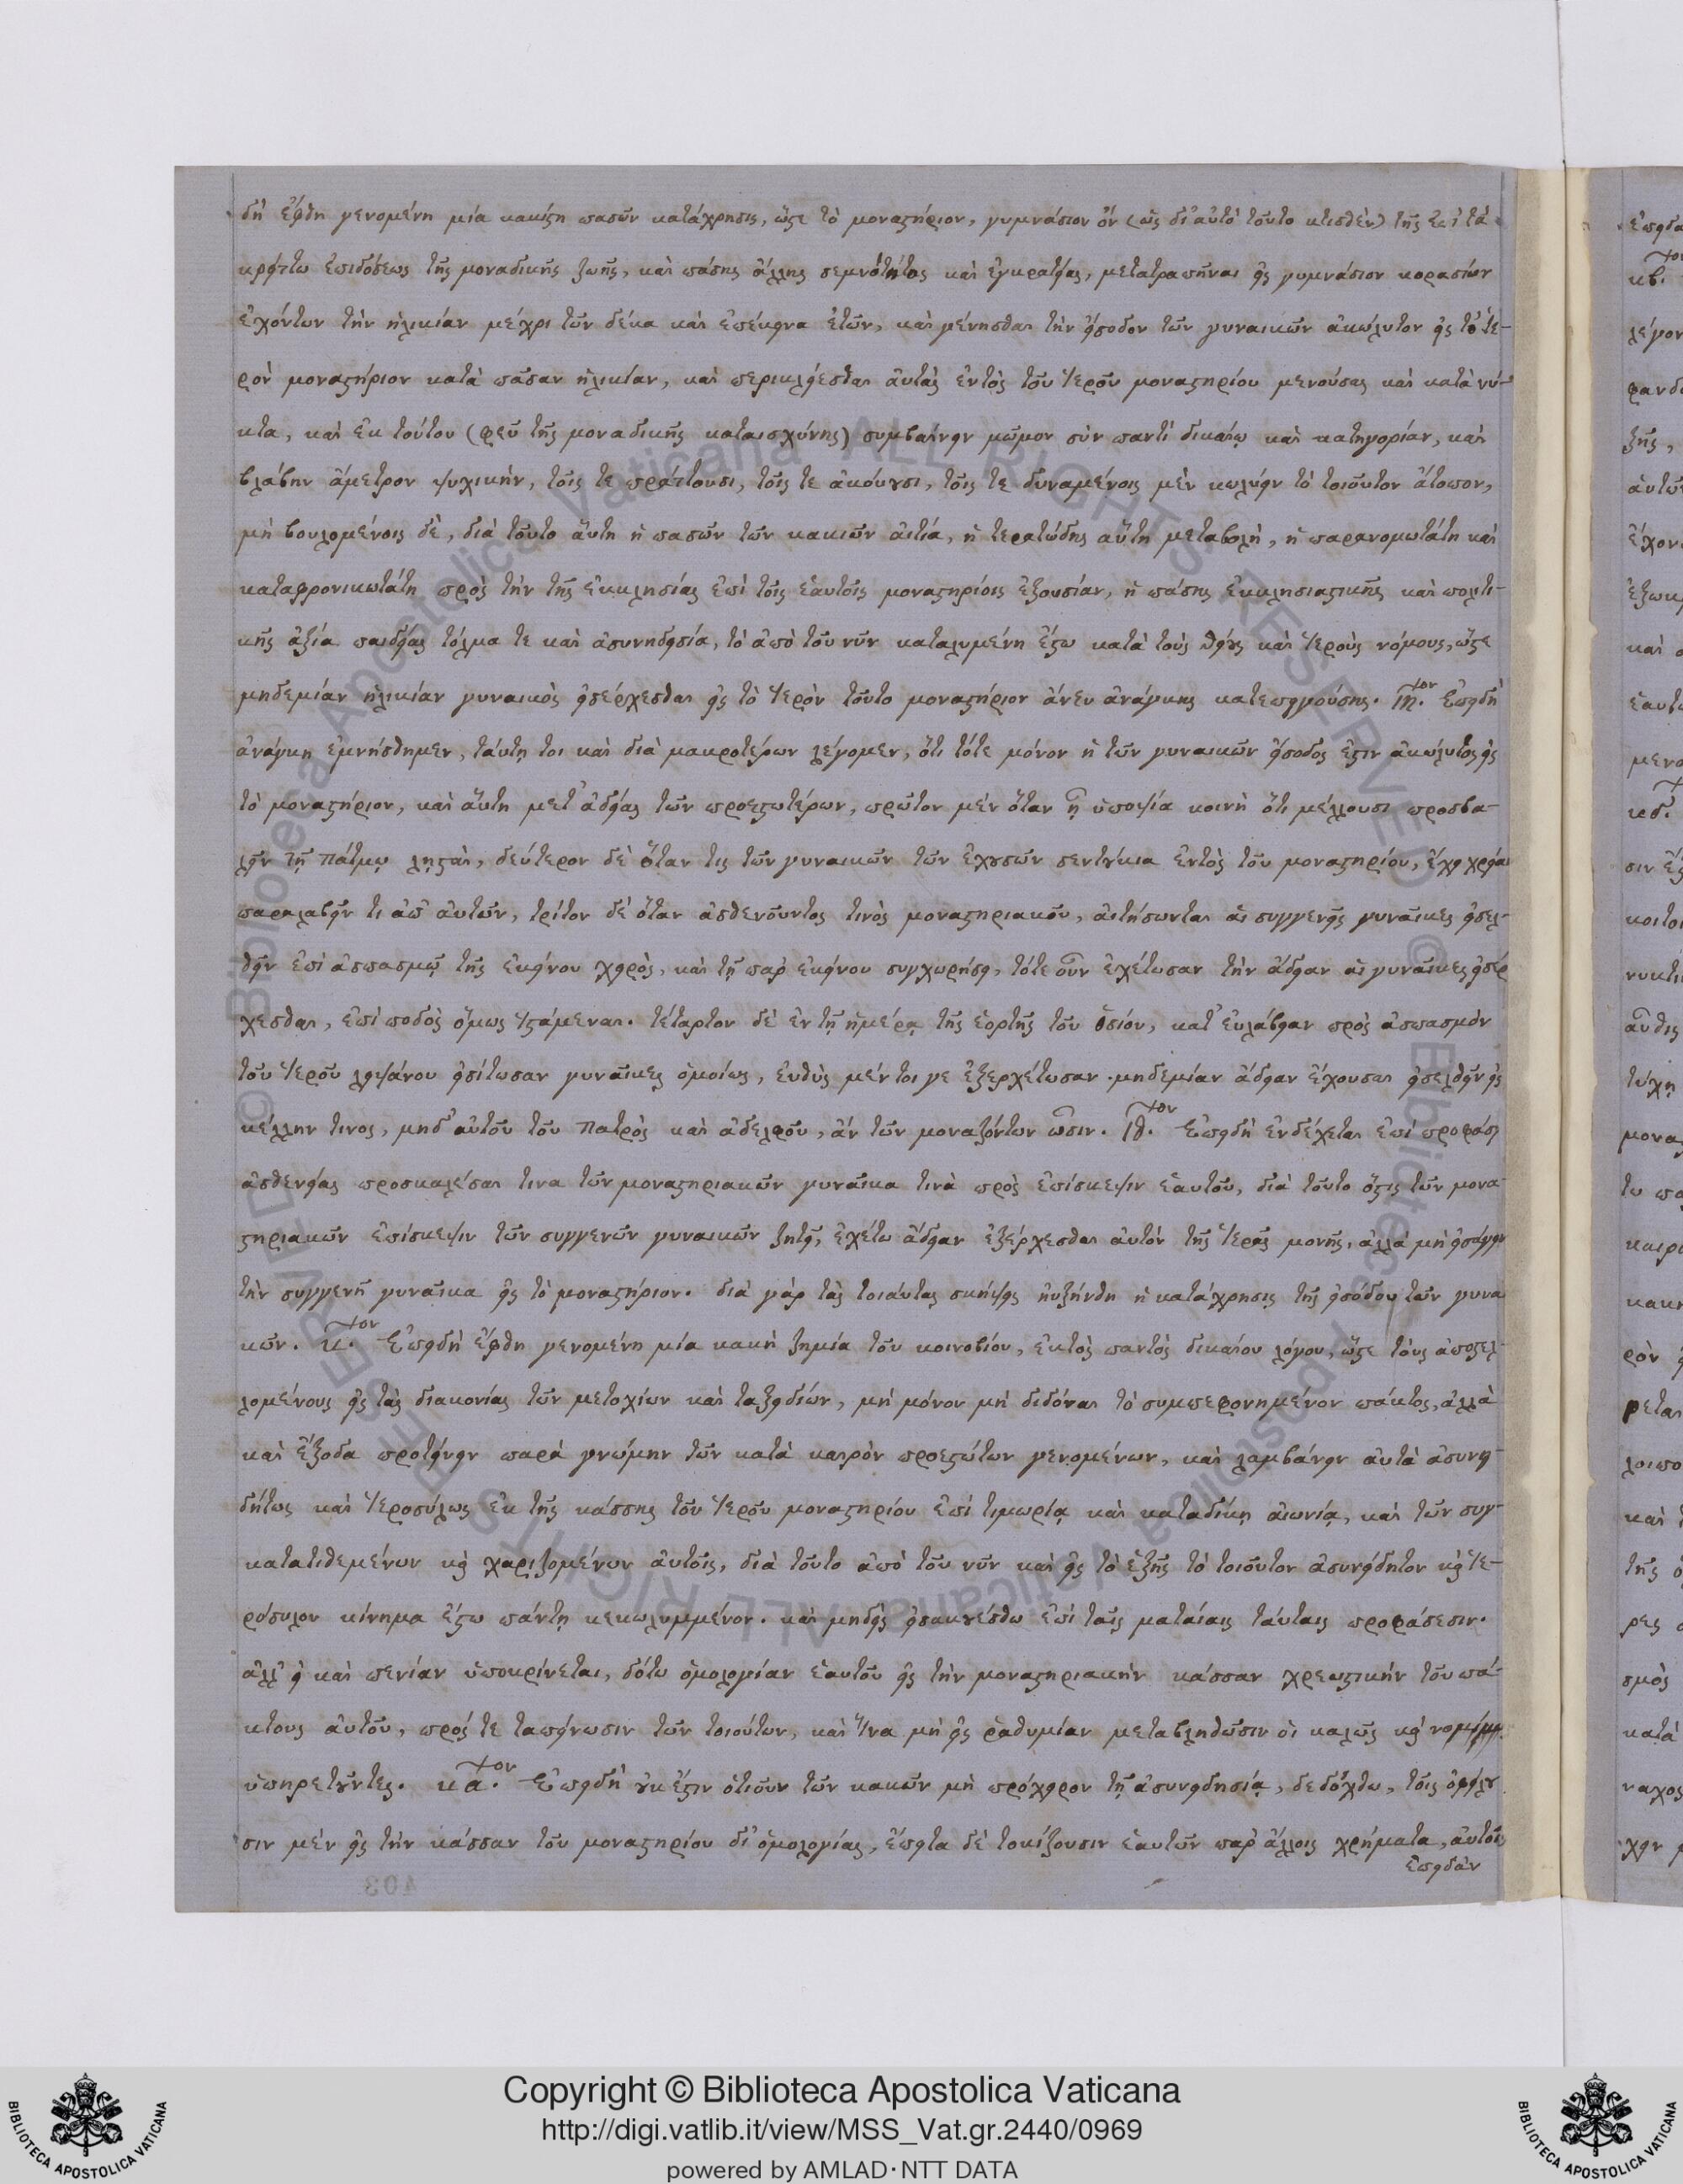 δὴ ἔφθη γενομένη μία κακίστη πασῶν κατάχρησις, ὥστε τὸ μοναστήριον, γυμνάσιον ὂν (ὡς δι' αὐτὸ τοῦτο κτισθὲν) τῆς ἐπὶ τὰ
κρείττω ἐπιδόσεως τῆς μοναδικῆς ζωῆς, καὶ πάσης ἄλλης σεμνότητος καὶ ἐγκρατείας, μετατραπῆναι εἰς γυμνάσιον κορασίων
ἐχόντων τὴν ἡλικίαν μέχρι τῶν δέκα καὶ ἐπέκεινα ἐτῶν, καὶ γίνεσθαι τὴν εἴσοδον τῶν γυναικῶν ἀκώλυτον εἰς τὸ ἱε-
ρὸν μοναστήριον κατὰ πᾶσαν ἡλικίαν, καὶ περικλείεσθαι αὐτὰς ἐντὸς τοῦ ἱεροῦ μοναστηρίου μενούσας καὶ κατὰ νύ-
κτα, καὶ ἐκ τούτου (φεῦ τῆς μοναδικῆς καταισχύνης) συμβαίνειν μῶμον σὺν παντὶ δικαίῳ καὶ κατηγορίαν, καὶ
βλάβην ἄμετρον ψυχικὴν, τοῖς τε πράττουσι, τοῖς τε ἀκούουσι, τοῖς τε δυναμένοις μὲν κωλύειν τὸ τοιοῦτον ἄτοπον,
μὴ βουλομένοις δὲ, διὰ τοῦτο αὕτη ἡ πασῶν τῶν κακιῶν αἰτία, ἡ τερατώδης αὕτη μεταβολὴ, ἡ παρανομωτάτη καὶ
καταφρονικωτάτη πρὸς τὴν τῆς ἐκκλησίας ἐπὶ τοῖς ἑαυτοῖς μοναστηρίοις ἐξουσίαν, ἡ πάσης ἐκκλησιαστικῆς καὶ πολιτι-
κῆς ἀξία παιδείας τόλμα τε καὶ ἀσυνειδησία, τὸ ἀπὸ τοῦ νῦν καταλυμένη ἔστω κατὰ τοὺς θείους καὶ ἱεροὺς νόμους, ὥστε
μηδεμίαν ἡλικίαν γυναικὸς εἰσέρχεσθαι εἰς τὸ ἱερὸν τοῦτο μοναστήριον ἄνευ ἀνάγκης κατεπειγούσης. ιη.τον Ἐπειδὴ
ἀνάγκη ἐμνήσθημεν, ταύτῃ τοι καὶ διὰ μακροτέρων λέγομεν, ὅτι τότε μόνον ἡ τῶν γυναικῶν εἴσοδος ἔστιν ἀκώλυτος εἰς
τὸ μοναστήριον, καὶ αὕτη μετ' ἀδείας τῶν προεστωτέρων, πρῶτον μὲν ὅταν ᾖ ὑποψία κοινὴ ὅτι μέλλουσι προσβα-
λεῖν τῇ Πάτμῳ λῃσταὶ, δεύτερον δὲ ὅταν τις τῶν γυναικῶν τῶν ἐχουσῶν σεντούκια ἐντὸς τοῦ μοναστηρίου, ἔχῃ χρείαν
παραλαβεῖν τι ἀπ' αὐτῶν, τρίτον δὲ ὅταν ἀσθενοῦντος τινὸς μοναστηριακοῦ, αἰτήσωνται αἱ συγγενεῖς γυναῖκες εἰσελ-
θεῖν ἐπὶ ἀσπασμῷ τῆς ἐκείνου χειρὸς, καὶ τῇ παρ' ἐκείνου συγχωρήσει, τότε οὖν ἐχέτωσαν τὴν ἄδειαν αἱ γυναῖκες εἰσέρ
χεσθαι, ἐπὶ ποδὸς ὅμως ἱστάμεναι. τέταρτον δὲ ἐν τῇ ἡμέρᾳ τῆς ἑορτῆς τοῦ ὁσίου, κατ' εὐλάβειαν πρὸς ἀσπασμὸν
τοῦ ἱεροῦ λειψάνου εἰσίτωσαν γυναῖκες ὁμοίως, εὐθὺς μέντοι γε ἐξερχέτωσαν. μηδεμίαν ἄδειαν ἔχουσαι εἰσελθεῖν εἰς
κέλλην τινος, μηδ' αὐτοῦ τοῦ πατρὸς καὶ ἀδελφοῦ, ἂν τῶν μοναζόντων ὦσιν. ιθ.τον Ἐπειδὴ ἐνδέχεται ἐπὶ προφάσει
ἀσθενείας προσκαλέσαι τινα τῶν μοναστηριακῶν γυναῖκα τινὰ πρὸς ἐπίσκεψιν ἑαυτοῦ, διὰ τοῦτο ὅστις τῶν μονα-
στηριακῶν ἐπίσκεψιν τῶν συγγενῶν γυναικῶν ζητεῖ, ἐχέτω ἄδειαν ἐξέρχεσθαι αὐτὸν τῆς ἱερᾶς μονῆς, ἀλλὰ μὴ εἰσάγειν
τὴν συγγενῆ γυναῖκα εἰς τὸ μοναστήριον. διὰ γὰρ τὰς τοιαύτας σκήψεις ηὐξήνθη ἡ κατάχρησις τῆς εἰσόδου τῶν γυναι
κῶν. κ.τον Ἐπειδὴ ἔφθη γενομένη μία κακὴ ζημία τοῦ κοινοβίου, ἐκτὸς παντὸς δικαίου λόγου, ὥστε τοὺς ἀποστελ-
λομένους εἰς τὰς διακονίας τῶν μετοχίων καὶ ταξειδίων, μὴ μόνον μὴ διδόναι τὸ συμπεφωνημένον πάκτος, ἀλλὰ
καὶ ἔξοδα προτείνειν παρὰ γνώμην τῶν κατὰ καιρὸν προεστώτων γενομένων, καὶ λαμβάνειν αὐτὰ ἀσυνει-
δήτως καὶ ἱεροσύλως ἐκ τῆς κάσσης τοῦ ἱεροῦ μοναστηρίου ἐπὶ τιμωρίᾳ καὶ καταδίκῃ αἰωνίᾳ, καὶ τῶν συγ-
κατατιθεμένων κὶ χαριζομένων αὐτοῖς, διὰ τοῦτο ἀπὸ τοῦ νῦν καὶ εἰς τὸ ἑξῆς τὸ τοιοῦτον ἀσυνείδητον κὶ ἱε-
ρόσυλον κίνημα ἔστω πάντῃ κεκωλυμμένον. καὶ μηδεὶς εἰσακουέσθω ἐπὶ ταῖς ματαίαις ταύταις προφάσεσιν.
ἀλλ' εἰ καὶ πενίαν ὑποκρίνεται, δότω ὁμολογίαν ἑαυτοῦ εἰς τὴν μοναστηριακὴν κάσσαν χρεωστικὴν τοῦ πά-
κτους αὐτοῦ, πρός τε ταπείνωσιν τῶν τοιούτων, καὶ ἵνα μὴ εἰς ῥαθυμίαν μεταβληθῶσιν οἱ καλῶς κὶ νομίμως
ὑπηρετοῦντες. κα.τον Ἐπειδὴ οὐκ ἔστιν ὁτιοῦν τῶν κακῶν μὴ πρόχειρον τῇ ἀσυνειδησίᾳ, δεδόχθω, τοῖς ὀφείλου
σιν μὲν εἰς τὴν κάσσαν τοῦ μοναστηρίου δι' ὁμολογίας, ἔπειτα δὲ τοκίζουσιν ἑαυτῶν παρ' ἄλλοις χρήματα, αὐτοῖς
ἐπειδὰν
403
Copyright © Biblioteca Apostolica Vaticana
http://digi.vatlib.it/view/MSS_Vat.gr.2440/0969
powered by AMLAD·NTT DATA